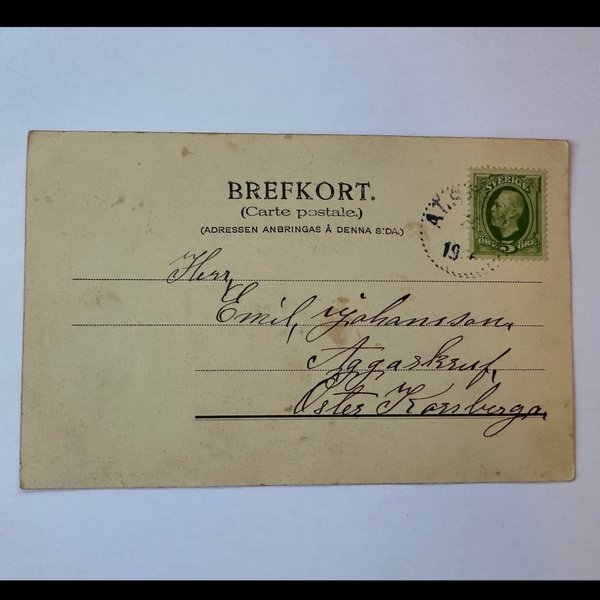 BREFKORT.
(Carte postale.)
(ADRESSEN ANBRINGAS Å DENNA SIDA.)
SVERIGE
ÖRE 5 ÖRE
19
Herr
Emil, Johansson,
Aggaskruf,
Öster Korsberga.